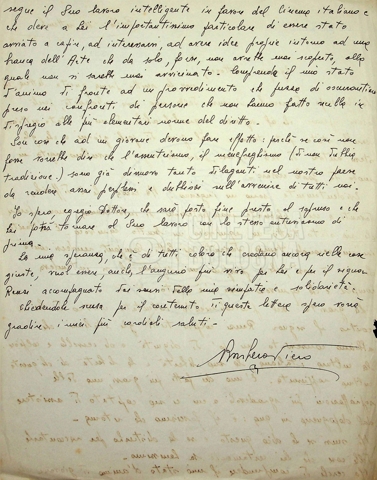 segue il Suo lavoro intelligente in favore del cinema italiano e
che devo a Lei l'importantissimo particolare di essere stato
avviato a capire, ad interessarmi, ad avere idee proprie intorno ad una
branca dell'Arte che da solo, forse, non avrei mai scoperto, alla
quale non si sarebbe mai avvicinato. Comprenda il mio stato
d'animo di fronte ad un provvedimento che puzza di oscurantismo
preso nei confronti di persone che non hanno fatto nulla in
dispregio alle più elementari norme del diritto.
Son cose che ad un giovane devono fare effetto: poiché se così non
fosse vorrebbe dire che l'assenteismo, il menefreghismo (di non
tradizione) sono già dimora tanto dilagenti nel nostro paese
da renderci assai perplessi e dubbiosi sull'avvenire di tutti noi.
Io spero, egregio Dottore, che sarà posto fine presto al sopruso e che
Lei potrà tornare al Suo lavoro con lo stesso entusiasmo di
prima.
La mia speranza, che è di tutti coloro che credono ancora nelle cose
giuste, vuol essere, anche, l'augurio più vivo per Lei e per il signor
Renzi accompagnato dai sensi della mia simpatia e solidarietà.
Chiedendole scusa per il contenuto di questa lettera spero vorrà
gradire i miei più cordiali saluti -
Piero